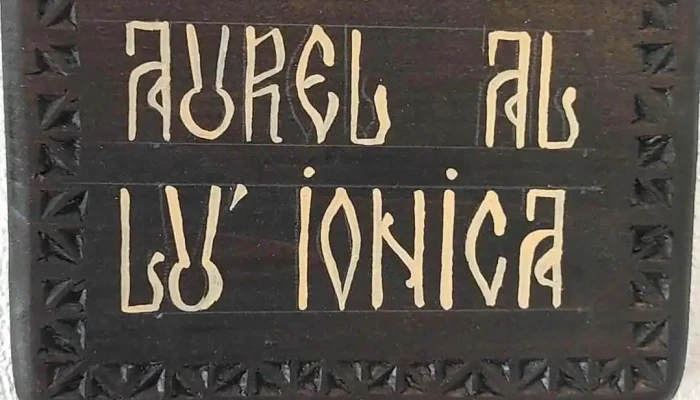 AUREL AL
LU' IONICA